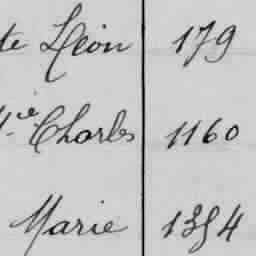 te Léon 179
Cie Charles 1160
Marie 1354